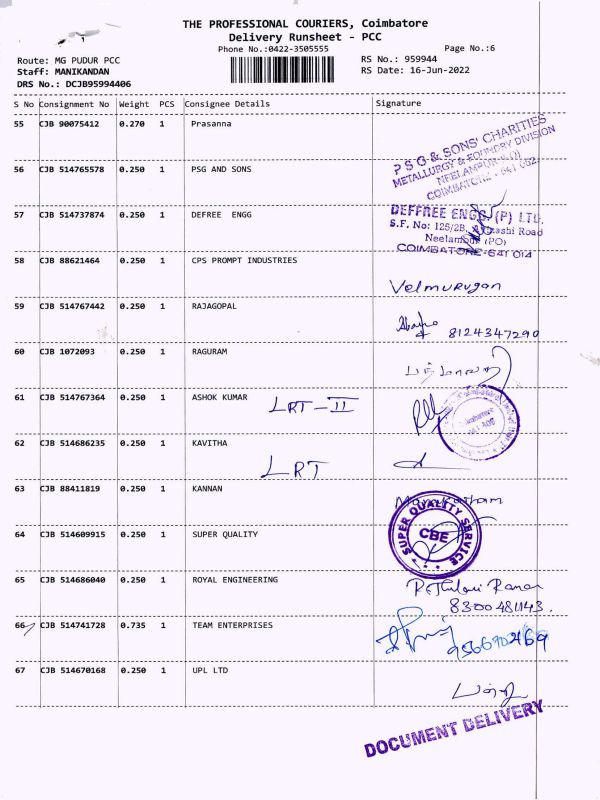 THE PROFESSIONAL COURIERS, Coimbatore
Delivery Runsheet - PCC
Phone No.:0422-3505555
Page No.:6
Route: MG PUDUR PCC
RS No.: 959944
Staff: MANIKANDAN
RS Date: 16-Jun-2022
DRS No.: DCJB95994406
S No Consignment No Weight PCS Consignee Details Signature
55 CJB 90075412 0.270 1 Prasanna
P S G & SONS' CHARITIES
METALLURGY & FOUNDRY DIVISION
56 CJB 514765578 0.250 1 PSG AND SONS
COIMBATORE - 641 062
57 CJB 514737874 0.250 1 DEFREE ENGG
DEFFREE ENGG (P) LTD.
S.F. No: 125/2B, Road
Neelambur (PO)
COIMBATORE-641 014
58 CJB 88621464 0.250 1 CPS PROMPT INDUSTRIES
Velmurugan
59 CJB 514767442 0.250 1 RAJAGOPAL
8124347290
60 CJB 1072093 0.250 1 RAGURAM
61 CJB 514767364 0.250 1 ASHOK KUMAR
LRT-II
62 CJB 514686235 0.250 1 KAVITHA
LRT
63 CJB 88411819 0.250 1 KANNAN
64 CJB 514609915 0.250 1 SUPER QUALITY
SUPER QUALITY SERVICE
CBE
65 CJB 514686040 0.250 1 ROYAL ENGINEERING
8300481143.
66 CJB 514741728 0.735 1 TEAM ENTERPRISES
67 CJB 514670168 0.250 1 UPL LTD
DOCUMENT DELIVERY